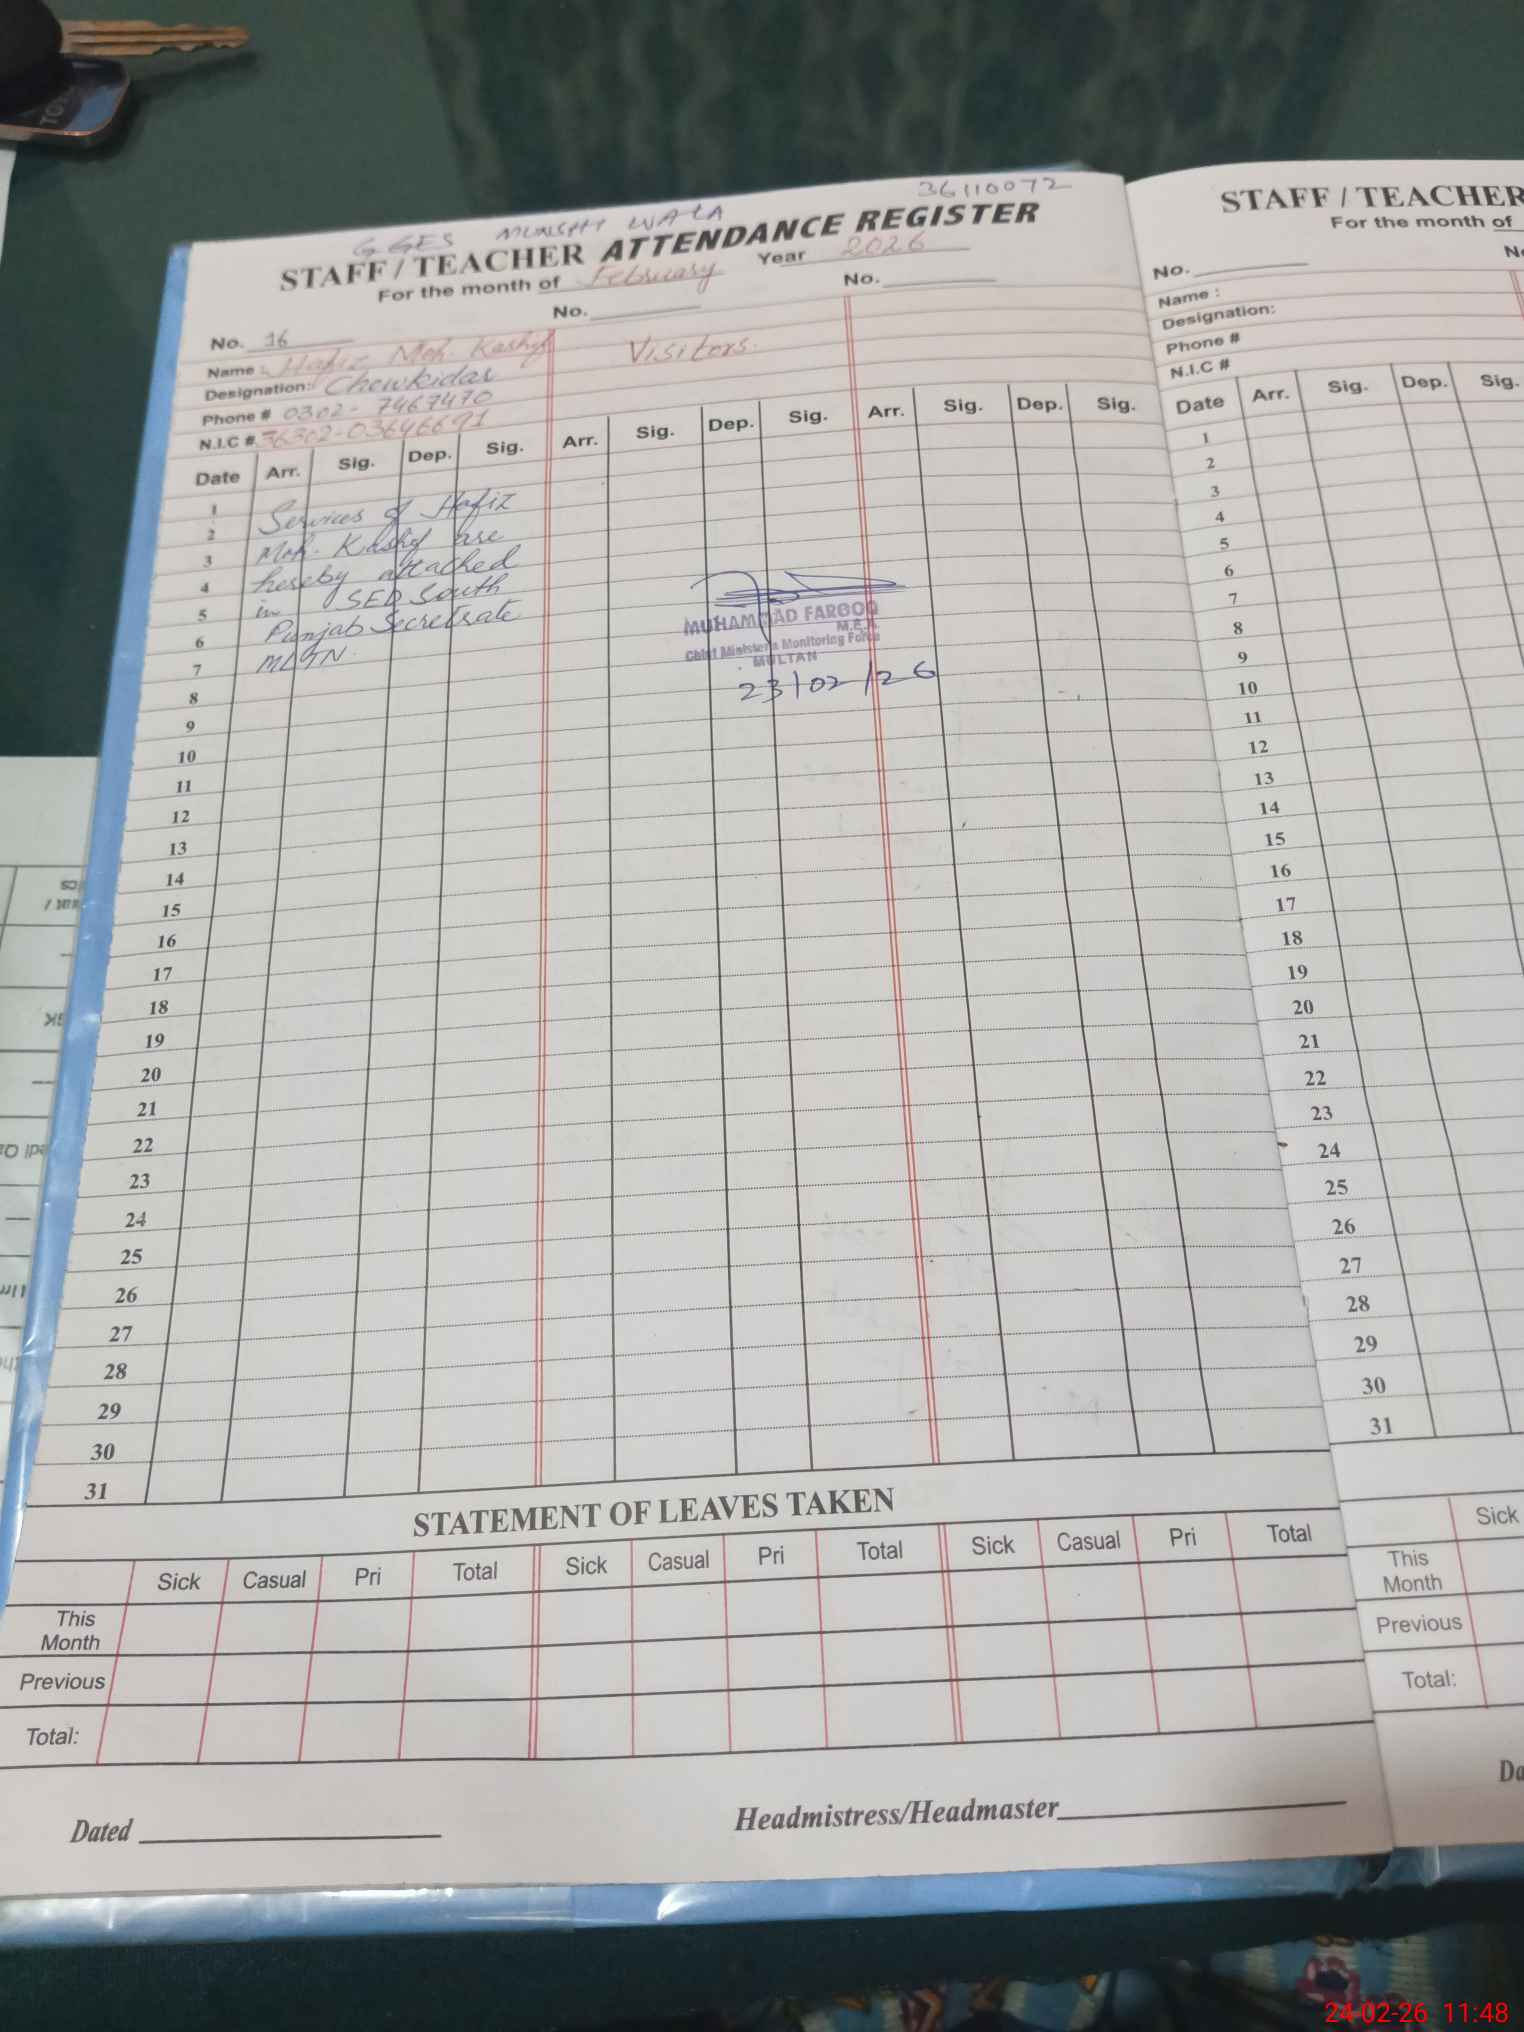 36110072
GGES MUNSHI WALA
STAFF / TEACHER ATTENDANCE REGISTER
For the month of February Year 2026
No. 16 No. No.
Name : Hafiz Moh. Kashif Visitors.
Designation: Chowkidar
Phone # 0302-7467470
N.I.C # 36302-03646691
Date Arr. Sig. Dep. Sig. Arr. Sig. Dep. Sig. Arr. Sig. Dep. Sig.
1 Services of Hafiz
2 Moh. Kashif are
3 hereby attached
4 in SED South
5 Punjab Secretrate
6 MLTN.
7
8
9
10
11
12
13
14
15
16
17
18
19
20
21
22
23
24
25
26
27
28
29
30
31
MUHAMMAD FAROOQ
M.E.A.
Chief Minister's Monitoring Force
MULTAN
23/02/26
STATEMENT OF LEAVES TAKEN
Sick Casual Pri Total Sick Casual Pri Total Sick Casual Pri Total
This Month
Previous
Total:
Dated Headmistress/Headmaster
STAFF / TEACHER
For the month of
No.
Name :
Designation:
Phone #
N.I.C #
Date Arr. Sig. Dep. Sig.
1
2
3
4
5
6
7
8
9
10
11
12
13
14
15
16
17
18
19
20
21
22
23
24
25
26
27
28
29
30
31
Sick
This Month
Previous
Total:
24-02-26 11:48